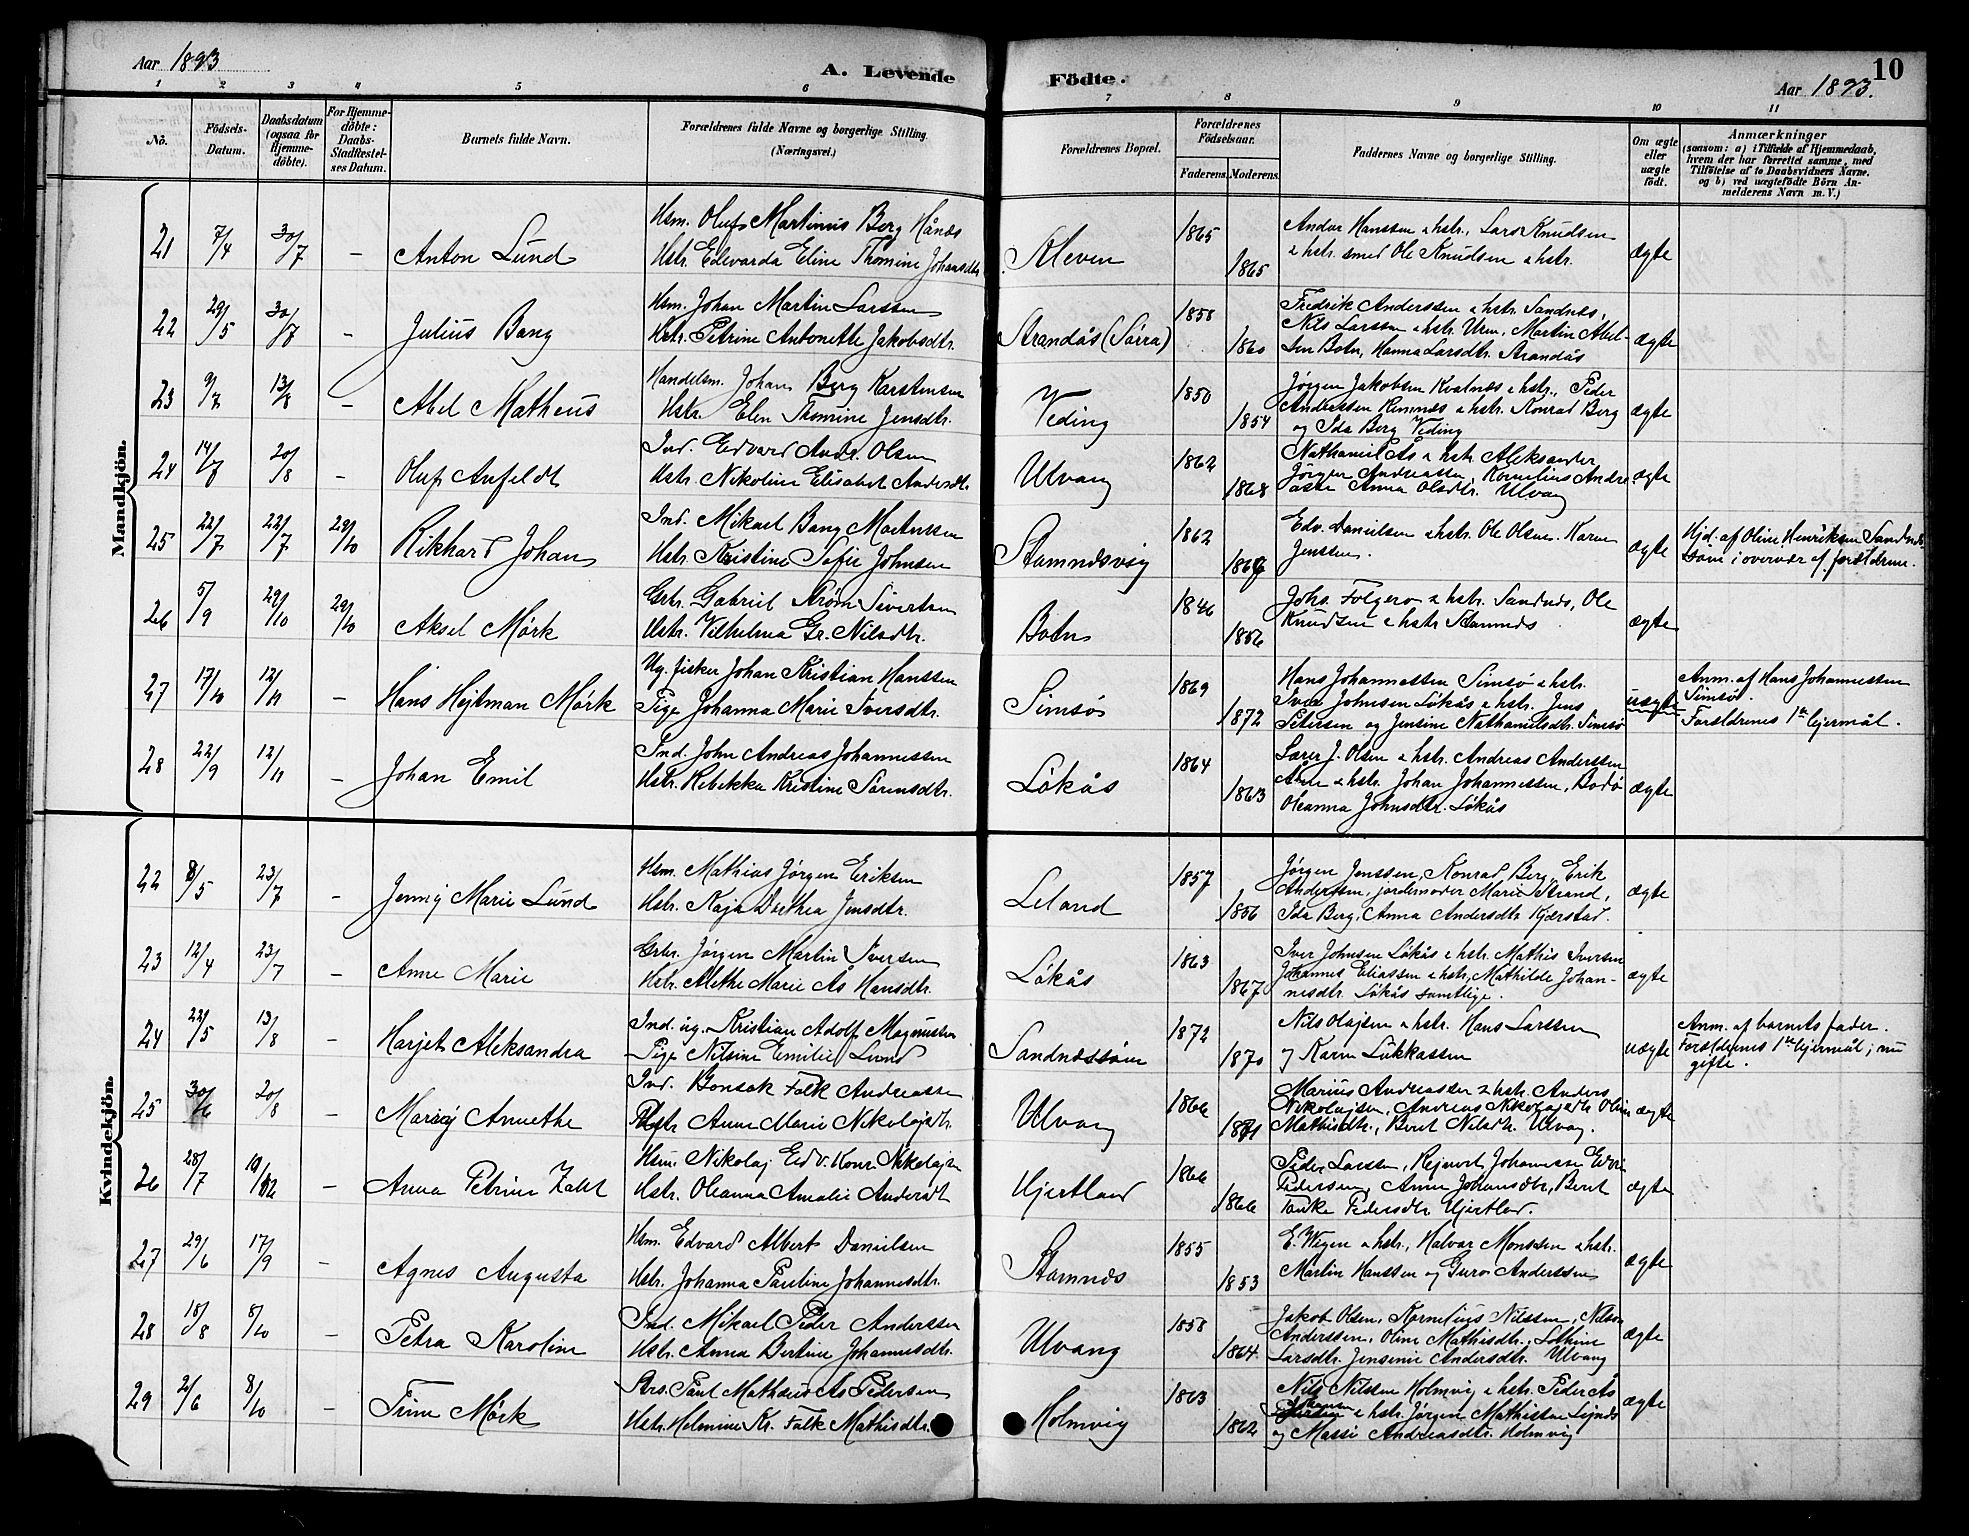 Aar 1893
A. Levende
Födte.
10
Aar 1893.
1 2 3 4 5 6 7 8 9 10 11
No.
Födsels-
Datum.
Daabsdatum
(ogsaa for
Hjemme-
döbte).
For Hjemme-
döbte:
Daabs-
Stadfæstel-
ses Datum.
Barnets fulde Navn.
Forældrenes fulde Navne og borgerlige Stilling.
(Næringsvei.)
Forældrenes Bopæl.
Forældrenes
Födselsaar.
Faderens. Moderens.
Faddernes Navne og borgerlige Stilling.
Om ægte
eller
uægte
födt.
Anmærkninger
(saasom: a) i Tilfælde af Hjemmedaab,
hvem der har forrettet samme, med
Tilföielse af to Daabsvidners Navne.
og b) ved uægtefödte Börn An-
melderens Navn m. V.)
Mandkjön.
21 7/4 30/7 – Anton Lund
Hsm. Oluf Martinus Berg Hånes
Hstr. Edevarda Eline Thomine Johansdtr.
Kleven 1865 1865
Andor Hanssen & hstr., Lars Knudsen
& hstr. smed Ole Knudsen & hstr.
ægte
22 29/5 30/7 – Julius Bang
Hsm. Johan Martin Larssen
Hstr. Petrine Antonette Jakobsdtr.
Strandås (Sørra) 1858 1860
Fredrik Anderssen & hstr. Sandnes,
Nils Larssen & hstr. Uren, Martin Abel-
sen Botn, Hanna Larsdtr. Strandås
ægte
23 9/7 13/8 – Abel Matheus
Handelsm. Johan Berg Karstensen
Hstr. Elen Thomine Jensdtr.
Veding 1850 1854
Jørgen Jakobsen Kvalnæs & hstr., Peder
Anderssen Remnæs & hstr. Konrad Berg
og Ida Berg Veding
ægte
24 14/7 20/8 – Oluf Anfeldt
Ind. Edvard Andr. Olsen
Hstr. Nikoline Elisabet Andersdtr.
Ulvang 1862 1868
Nathanael Ås & hstr Aleksander
Jørgen Andreassen, Kornelius Andre
assen Anna Olsdtr. Ulvang
ægte
25 22/7 22/7 29/10 Rikhard Johan
Ind. Mikael Bang Martinssen
Hstr. Kristine Sofie Johnsen
Stamnæsvig 1862
Edv. Danielsen & hstr. Ole Olsen. Karen
Jenssen.
ægte
Hjd. af Oline Henriksen Sandnes
som i overvær af forældrene.
26 5/9 29/10 29/10 Aksel Mørk
Grbr. Gabriel Strøm Sivertsen
Hstr. Vilhelma Gr. Nilsdtr.
Botn 1846 1856
Johs. Folgerø & hstr. Sandnes, Ole
Knudsen & hstr Stamnes
ægte
27 17/10 12/11 – Hans Hejtman Mørk
Ug. fisker Johan Kristian Hanssen
Pige Johanna Marie Iversdtr.
Simsø 1869 1872
Hans Johannessen Simsø & hstr.
Iver Johnsen Løkås & hstr. Jens
Petersen og Jensine Nathanielsdtr. Simsø
uægte
Anm. af Hans Johannessen
Simsø.
Forældrenes 1ste lejermål.
28 22/9 12/11 – Johan Emil
Ind. John Andreas Johannessen
Hstr. Rebekka Kristine Sørensdtr.
Løkås 1864 1863
Lærer J. Olsen & hstr. Andreas Anderssen
& hstr. Johan Johannessen, Bodø
Oleanna Johnsdtr. Løkås
ægte
Kvindekjön.
22 8/5 23/7 – Jenny Marie Lund
Hsm. Mathias Jørgen Eriksen
Hstr. Kaja Dorthea Jensdtr.
Leland 1857 1856
Jørgen Jenssen, Konrad Berg, Erik
Anderssen, jordemoder Marie Strand,
Ida Berg, Anna Andersdtr Kjærstad.
ægte
23 12/4 23/7 – Anne Marie
Grbr. Jørgen Martin Iversen
Hstr. Alethe Marie Ås Hansdtr.
Løkås 1863 1867
Iver Johnsen Løkås & hstr. Mathis Iversen
Johannes Eliassen & hstr, Mathilde Johan-
nesdtr. Løkås samtlige.
ægte
24 22/5 13/8 – Harjet Aleksandra
Ind. ug. Kristian Adolf Magnussen
Pige Nilsine Emilie Lund
Sandnessøen 1872 1870
Nils Olajsen & hstr. Hans Larssen
og Karen Lukkassen
uægte
Anm. af barnets fader.
Forældrenes 1ste lejermål; nu
gifte.
25 30/6 20/8 – Annethe
Ind. Bonsak Falk Andreassen
Hstr Anne Marie Nikolajsdtr.
Ulvang 1866
Marius Andreassen & hstr. Anders
Nikolajsen, Andreas Nikolajsdtr Oline
Mathisdtr., Berit Nilsdtr. Ulvang.
ægte
26 28/7 – Anna Petrine
Hsm. Nikolaj Edv. Konr. Nikolajsen
Hstr. Oleanna Amalie Andersdtr
Hjertland 1866 1866
Peder Larssen, Rejnert Johannessen
Pedersen, Anne Johansdtr, Berit
Tanke Pedersdtr Hjertland.
ægte
27 29/6 17/9 – Agnes Augusta
Hsm. Edvard Albert Danielsen
Hstr. Johanna Pauline Johannesdtr.
Stamnes 1855 1853
E. Wigen & hstr., Halvar Monssen & hstr.
Martin Hanssen og Guro Anderssen
ægte
28 18/8 8/10 – Petra Karoline
Ind. Mikael Peder Anderssen
Hstr. Anna Bertine Johannesdtr.
Ulvang 1858 1864
Jakob Olsen, Kornelius Nilssen, Nilsen
Anderssen, Oline Mathisdtr.,
Larsdtr. Jensine Andersdtr. Ulvang
ægte
29 2/6 8/10 – Trine Mørk
Hrs. Paul Mathæus As Pedersen
Hstr. Helmine Kr. Falk Mathisdtr.
Holmvig 1863 1862
Nils Nilssen Holmvig & hstr. Peder Ås
Johansen & hstr. Jørgen Mathissen
og Massi Andreasdtr. Holmvig
ægte